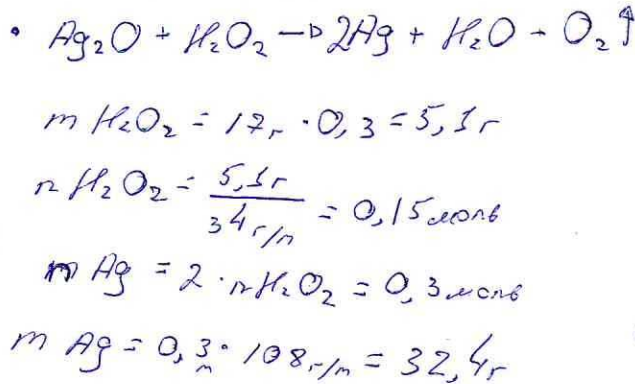 • Ag₂O + H₂O₂ → 2Ag + H₂O + O₂↑
m H₂O₂ = 17г · 0,3 = 5,1г
n H₂O₂ = 5,1г / 34г/м = 0,15 моль
n Ag = 2 · n H₂O₂ = 0,3 моль
m Ag = 0,3м · 108г/м = 32,4г